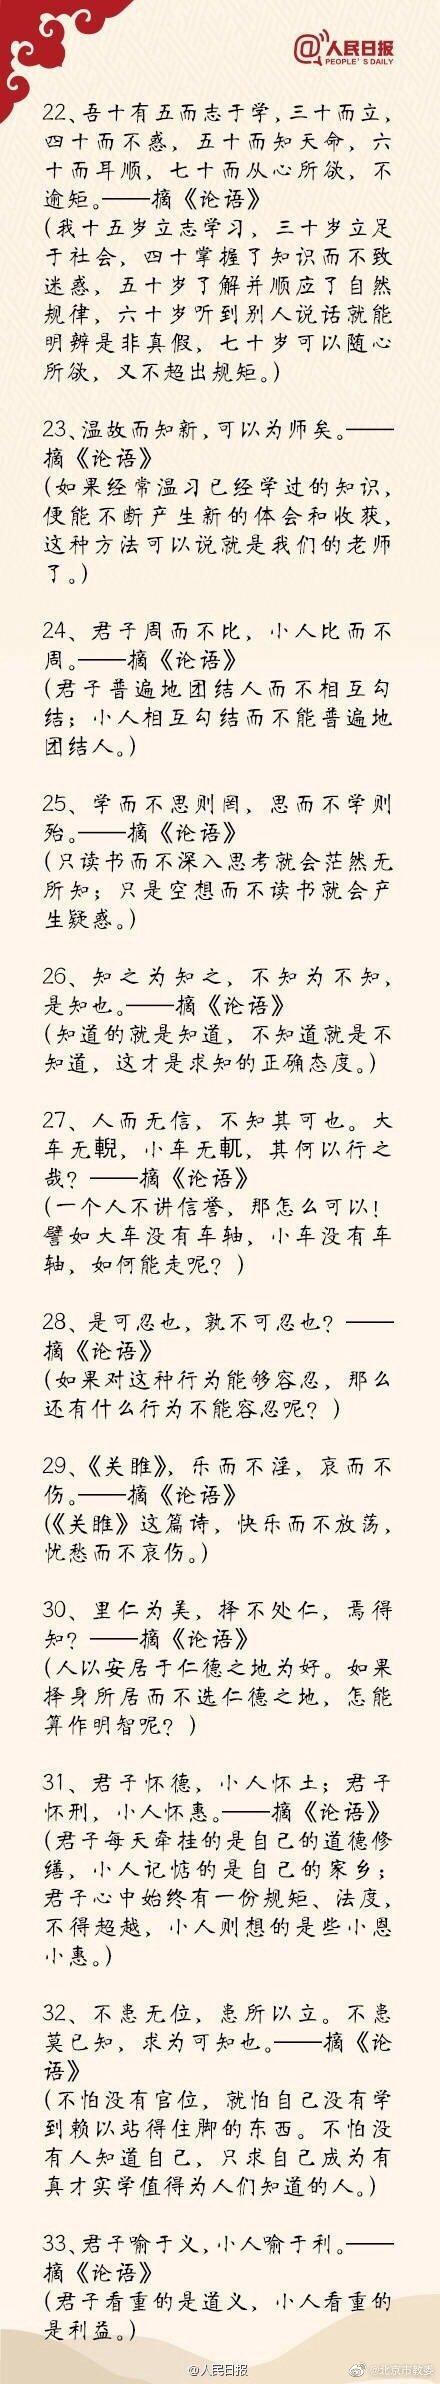 @人民日报
PEOPLE'S DAILY
22、吾十有五而志于学,三十而立,
四十而不惑，五十而知天命，六
十而耳顺，七十而从心所欲，不
逾矩。——摘《论语》
(我十五岁立志学习，三十岁立足
于社会，四十掌握了知识而不致
迷惑，五十岁了解并顺应了自然
规律，六十岁听到别人说话就能
明辨是非真假，七十岁可以随心
所欲，又不超出规矩。)
23、温故而知新,可以为师矣。——
摘《论语》
(如果经常温习已经学过的知识,
便能不断产生新的体会和收获,
这种方法可以说就是我们的老师
了。)
24、君子周而不比，小人比而不
周。——摘《论语》
(君子普遍地团结人而不相互勾
结；小人相互勾结而不能普遍地
团结人。)
25、学而不思则罔，思而不学则
殆。——摘《论语》
(只读书而不深入思考就会茫然无
所知；只是空想而不读书就会产
生疑惑。)
26、知之为知之，不知为不知,
是知也。——摘《论语》
(知道的就是知道，不知道就是不
知道，这才是求知的正确态度。)
27、人而无信，不知其可也。大
车无輗，小车无軏，其何以行之
哉？——摘《论语》
(一个人不讲信誉，那怎么可以！
譬如大车没有车轴，小车没有车
轴，如何能走呢？)
28、是可忍也，孰不可忍也？——
摘《论语》
(如果对这种行为能够容忍，那么
还有什么行为不能容忍呢？)
29、《关雎》，乐而不淫，哀而不
伤。——摘《论语》
(《关雎》这篇诗，快乐而不放荡,
忧愁而不哀伤。)
30、里仁为美，择不处仁，焉得
知？——摘《论语》
(人以安居于仁德之地为好。如果
择身所居而不选仁德之地，怎能
算作明智呢？)
31、君子怀德，小人怀土；君子
怀刑，小人怀惠。——摘《论语》
(君子每天牵挂的是自己的道德修
缮，小人记惦的是自己的家乡；
君子心中始终有一份规矩、法度,
不得超越，小人则想的是些小恩
小惠。)
32、不患无位，患所以立。不患
莫已知，求为可知也。——摘《论
语》
(不怕没有官位，就怕自己没有学
到赖以站得住脚的东西。不怕没
有人知道自己，只求自己成为有
真才实学值得为人们知道的人。)
33、君子喻于义,小人喻于利。——
摘《论语》
(君子看重的是道义，小人看重的
是利益。)
@人民日报
@北京市教委